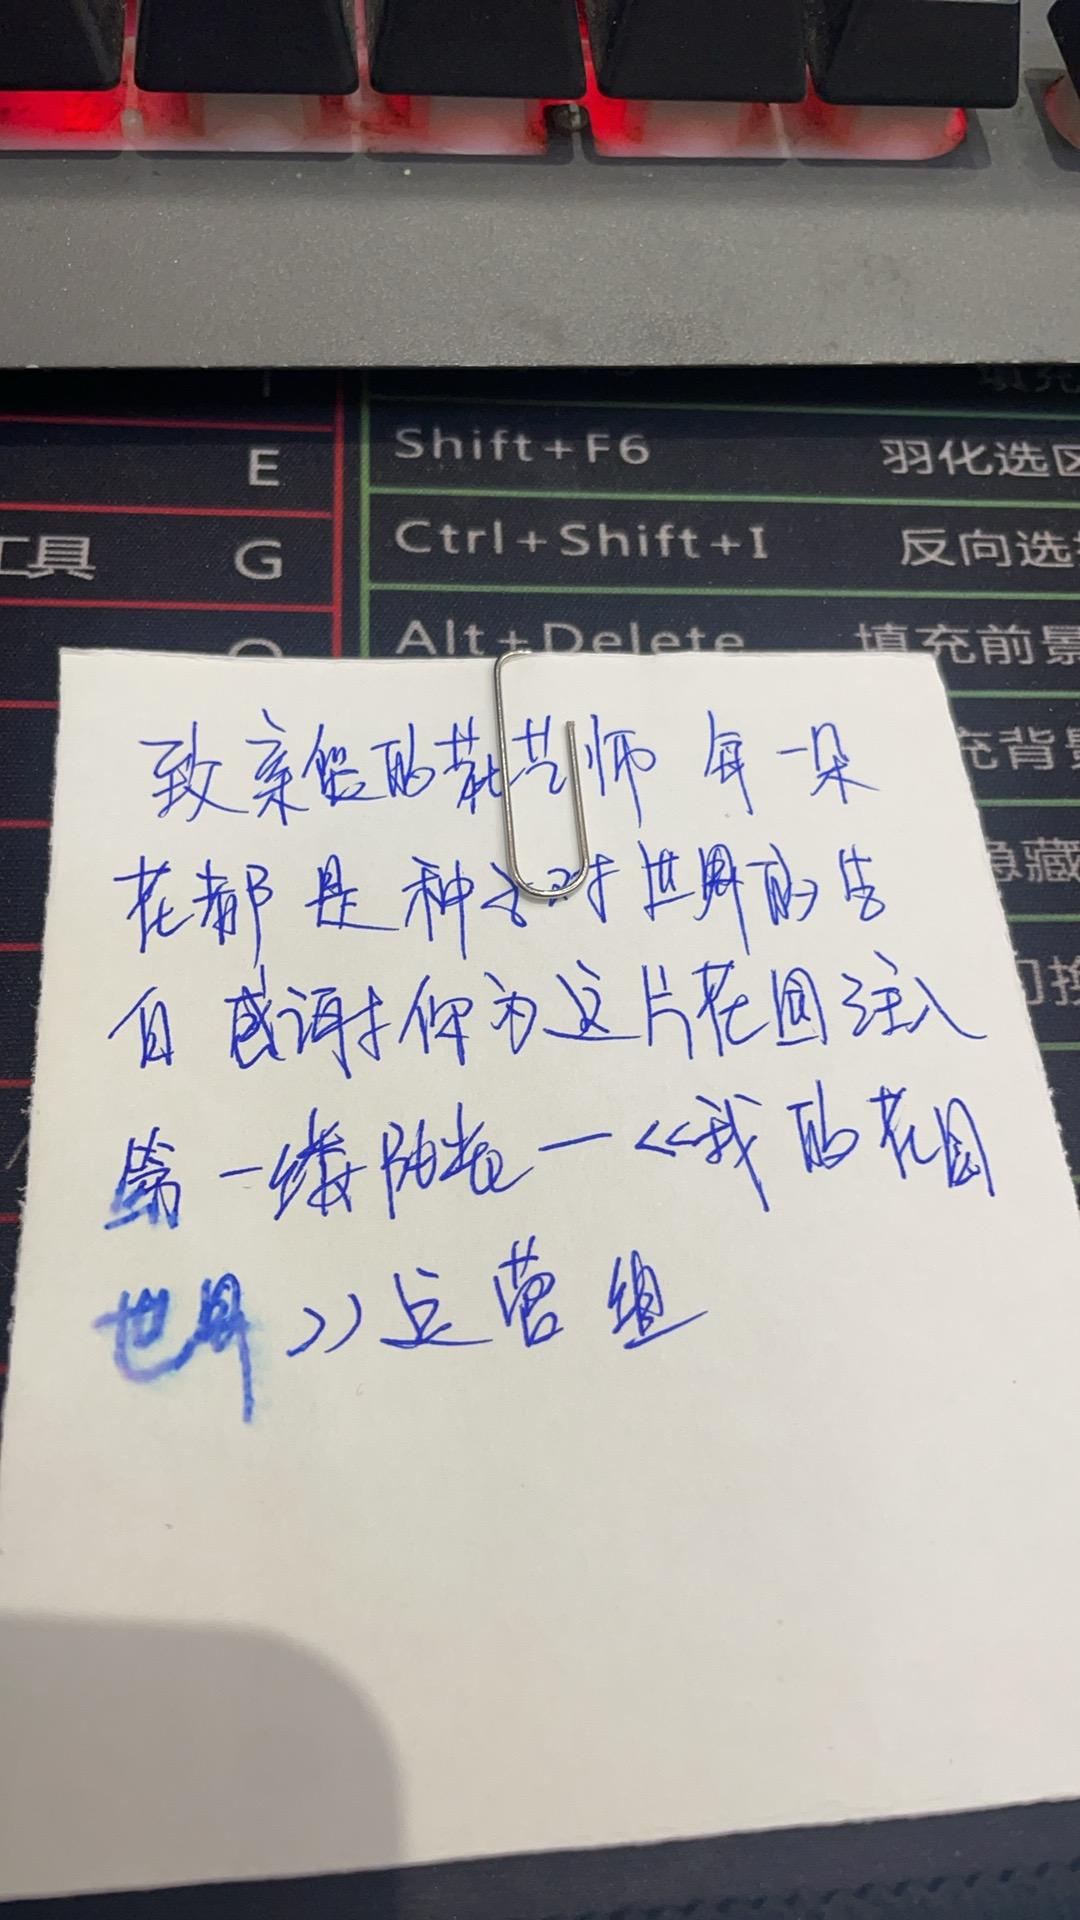 E
Shift+F6 羽化选区
工具 G
Ctrl+Shift+I 反向选
Alt+Delete 填充前景
充背景
隐藏
切换
致亲爱的花艺师 每一朵
花都是种子对世界的告
白 感谢你为这片花园注入
第一缕阳光—《我的花园
世界》运营组